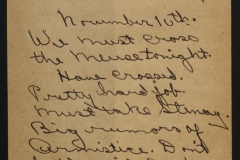 November 10th.
We must cross
the Meuse tonight.
Have crossed.
Pretty hard job.
Must take Stenay.
Big rumors of
Armistice. Don't